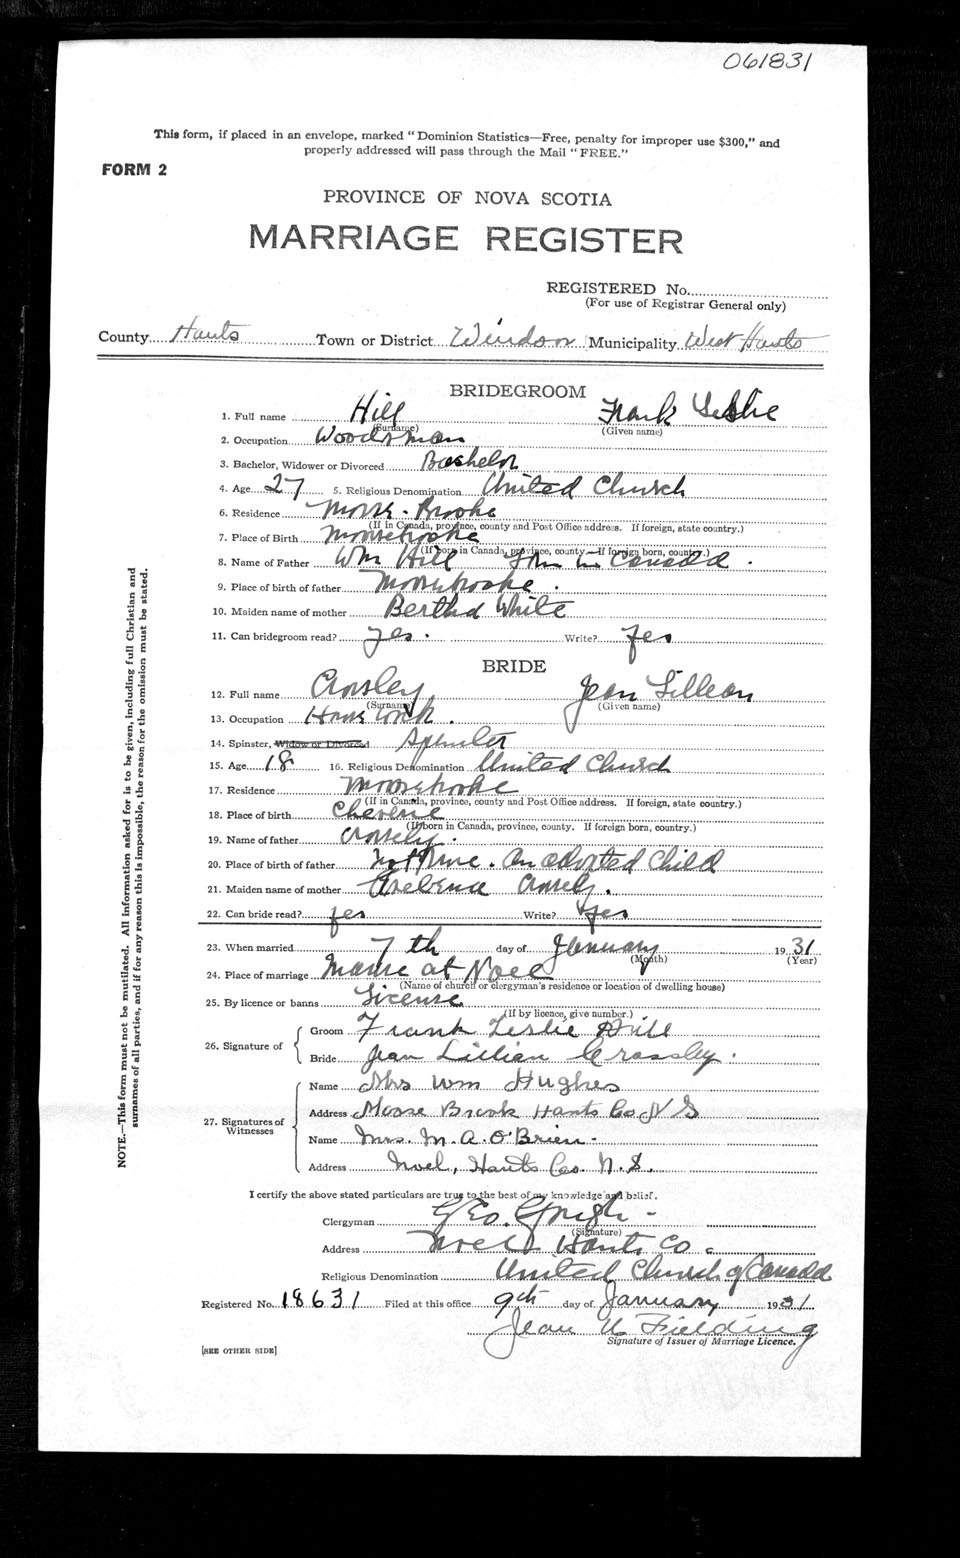 061831
This form, if placed in an envelope, marked "Dominion Statistics—Free, penalty for improper use $300," and
properly addressed will pass through the Mail "FREE."
FORM 2
PROVINCE OF NOVA SCOTIA
MARRIAGE REGISTER
REGISTERED No.
(For use of Registrar General only)
County Hants Town or District Windsor Municipality West Hants
BRIDEGROOM
1. Full name Hill Frank Leslie
(Surname) (Given name)
2. Occupation Woodsman
3. Bachelor, Widower or Divorced Bachelor
4. Age 27 5. Religious Denomination United Church
6. Residence Moose-Brooke
(If in Canada, province, county and Post Office address. If foreign, state country.)
7. Place of Birth Moosebrooke
(If born in Canada, province, county. If foreign born, country.)
8. Name of Father Wm Hill in Canada
9. Place of birth of father Moosebrooke.
10. Maiden name of mother Bertha White
11. Can bridegroom read? yes. Write? yes
BRIDE
12. Full name Jean Lillean
(Surname) (Given name)
13. Occupation House Work.
14. Spinster, Widow or Divorced Spinster
15. Age 18 16. Religious Denomination United Church
17. Residence Moosebrooke
(If in Canada, province, county and Post Office address. If foreign, state country.)
18. Place of birth Cheverie
(If born in Canada, province, county. If foreign born, country.)
19. Name of father
20. Place of birth of father An adopted Child
21. Maiden name of mother
22. Can bride read? yes Write? yes
23. When married 7th day of January 1931
(Month) (Year)
24. Place of marriage Manse at Noel
(Name of church or clergyman's residence or location of dwelling house)
25. By licence or banns License
(If by licence, give number.)
26. Signature of
Groom Frank Leslie Hill
Bride Jean Lillian Crossley.
27. Signatures of Witnesses
Name Mrs Wm Hughes
Address Moose Brook Hants Co. N S
Name Mrs. M. A. O'Brien.
Address Noel, Hants Co. N. S.
I certify the above stated particulars are true to the best of my knowledge and belief.
Clergyman Geo.
(Signature)
Address Noel Hants Co.
Religious Denomination United Church of Canada
Registered No. 18631 Filed at this office 9th day of January 1931
Jean Fielding
Signature of Issuer of Marriage Licence.
[SEE OTHER SIDE]
NOTE.—This form must not be mutilated. All information asked for is to be given, including full Christian and
surnames of all parties, and if for any reason this is impossible, the reason for the omission must be stated.